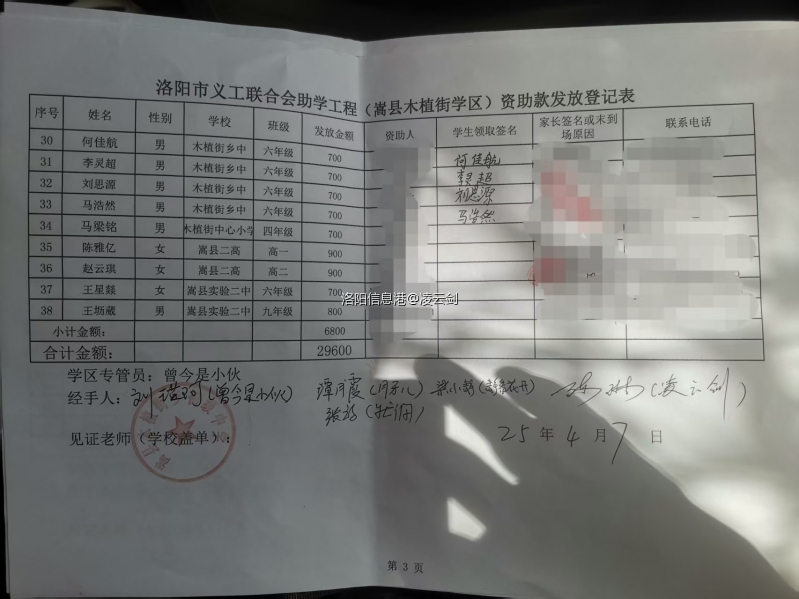 洛阳市义工联合会助学工程（嵩县木植街学区）资助款发放登记表
序号 姓名 性别 学校 班级 发放金额 资助人 学生领取签名 家长签名或未到场原因 联系电话
30 何佳航 男 木植街乡中 六年级 700 何佳航
31 李灵超 男 木植街乡中 六年级 700 李灵超
32 刘思源 男 木植街乡中 六年级 700 刘思源
33 马浩然 男 木植街乡中 六年级 700 马浩然
34 马梁铭 男 木植街中心小学 四年级 700
35 陈雅亿 女 嵩县二高 高一 900
36 赵云琪 女 嵩县二高 高二 900
37 王星燚 女 嵩县实验二中 六年级 700
38 王坜蔵 男 嵩县实验二中 九年级 800
小计金额： 6800
合计金额： 29600
洛阳信息港@凌云剑
学区专管员：曾今是小伙
经手人：(曾今是小伙) 谭月霞 (凌云剑)
见证老师（学校盖单）：
25 年 4 月 7 日
第 3 页